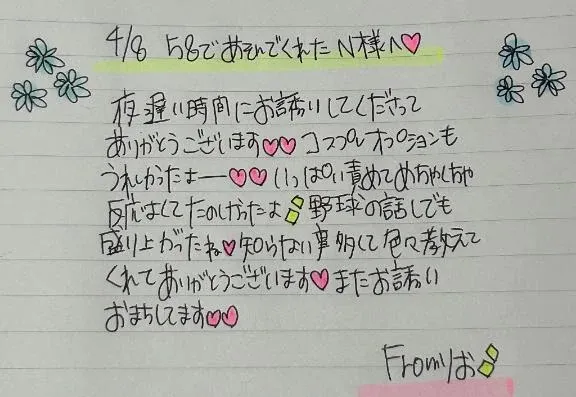 4/8 58であそんでくれたN様へ♡
夜遅い時間にお誘いしてくださって
ありがとうございます♡♡ コスプレオプションも
うれしかったよー♡♡ いっぱい責めてめちゃくちゃ
反応よくてたのしかったよ 野球の話しでも
盛り上がったね♡知らない事多くて色々教えて
くれてありがとうございます♡またお誘い
おまちしてます♡♡
Fromりお